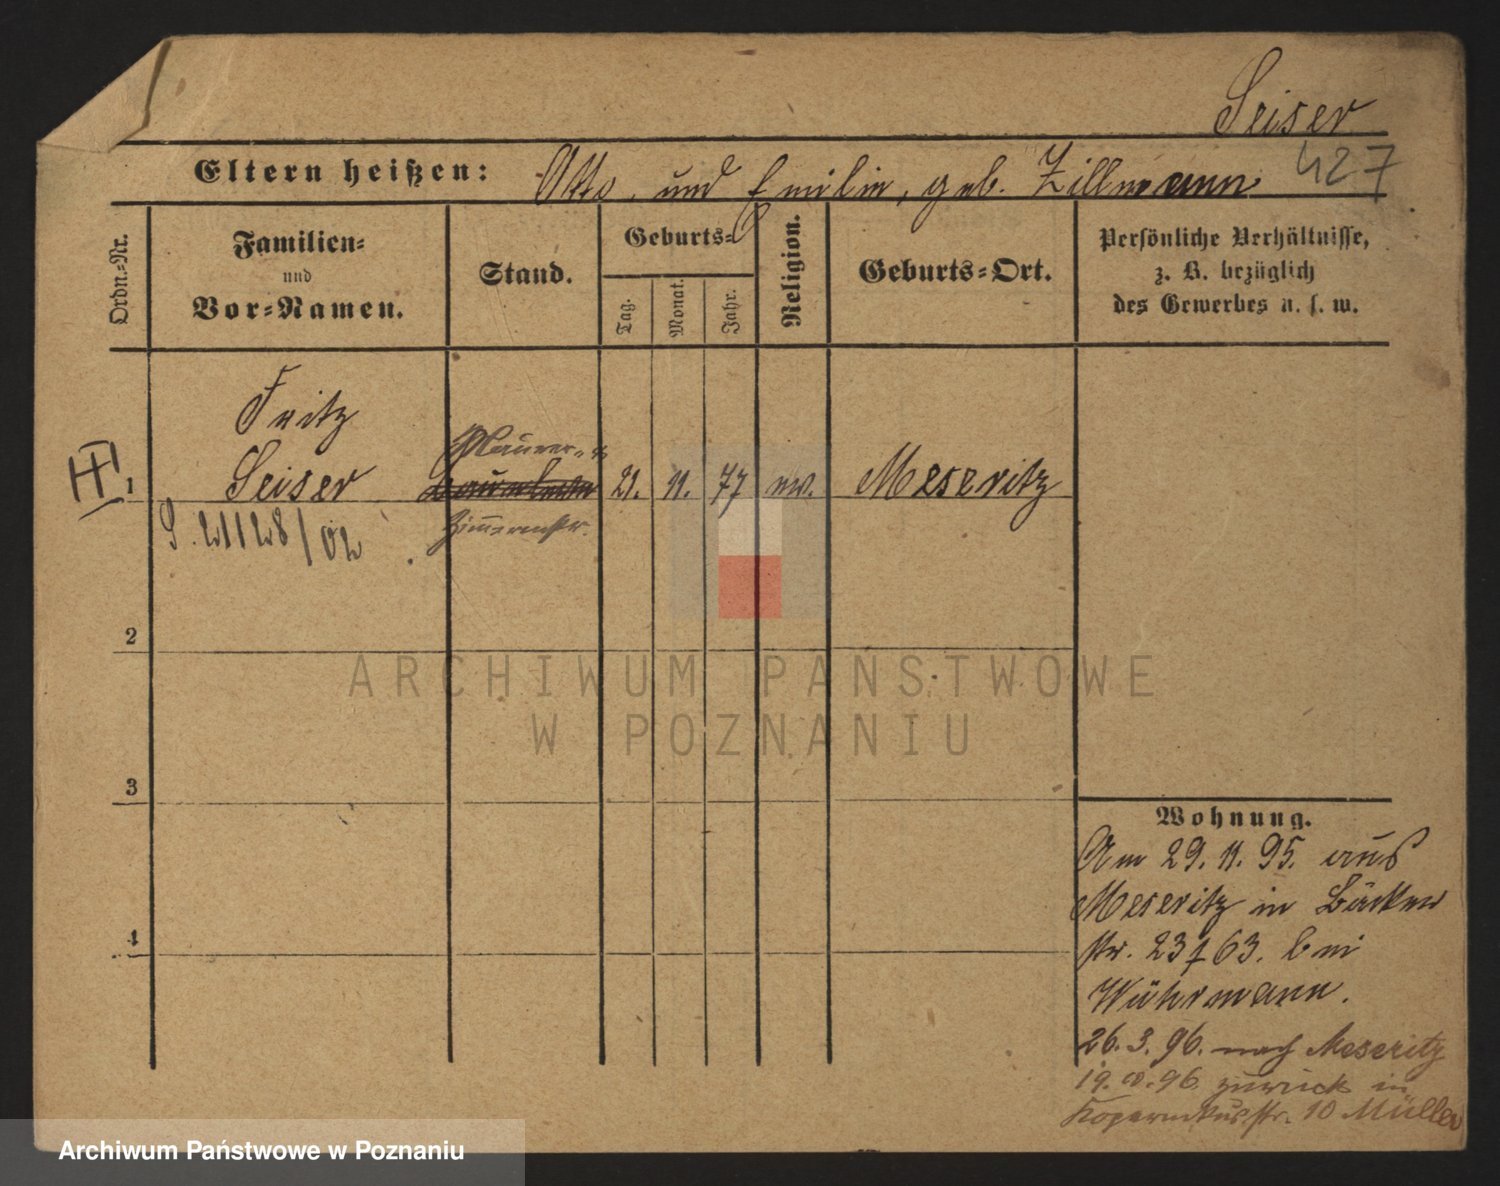 Seiser
427
Eltern heißen: Otto und Emilie, geb. Zillmann
Ordn.-Nr.
Familien- und Vor-Namen.
Stand.
Geburts-
Tag.
Monat.
Jahr.
Religion.
Geburts-Ort.
Persönliche Verhältnisse,
z. B. bezüglich
des Gewerbes u. s. w.
Fritz
Maurer- u
1 Seiser 21. 11. 77 ev. Meseritz
Zimmermstr.
2
3
4
ARCHIWUM PAŃSTWOWE
W POZNANIU
Wohnung.
Am 29. 11. 95. aus
Meseritz in Bäcker
str. 23 63. bei
Wührmann.
26. 3. 96. nach Meseritz
19. 10. 96. zurück in
Kopernikusstr. 10 Müller
Archiwum Państwowe w Poznaniu